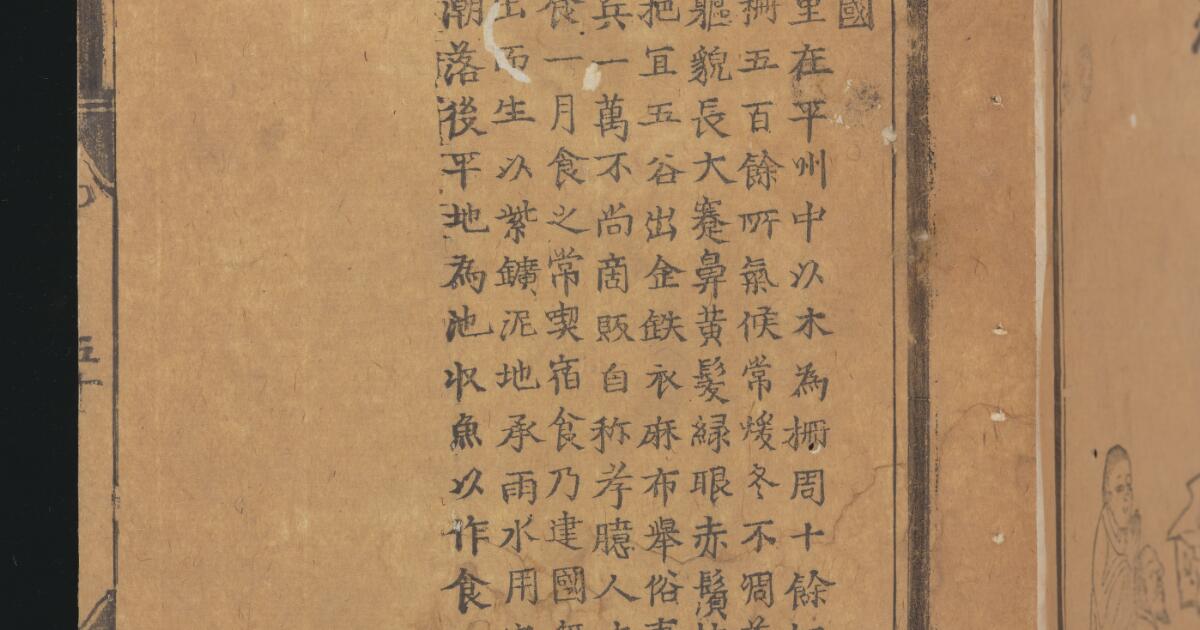 國
里在平州中以木為柵周十餘
柵五百餘所氣候常煖冬不凋
軀貌長大蹇鼻黄髪緑眼赤鬚
宜五谷出金鉄衣麻布舉俗
兵一萬不尚商販自称孝臆人
食一月食之常喫宿食乃建國
出而生以紫鑛泥地承雨水用
潮落後平地為池收魚以作食
五十